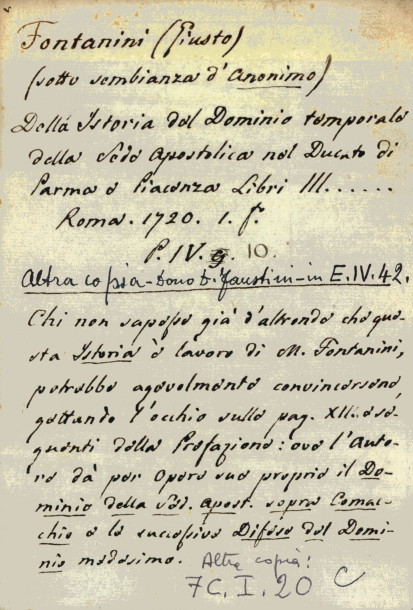 Fontanini (Giusto)
(sotto sembianza d'Anonimo)
Della Istoria del Dominio temporale
della Sede Apostolica nel Ducato di
Parma e Piacenza Libri III......
Roma. 1720. 1. f.
P. IV. 10.
Altra copia - dono D. Faustini - in E. IV. 42.
Chi non sapesse già d'altronde che que-
sta Istoria è lavoro di M. Fontanini,
potrebbe agevolmente convincersene
gettando l'occhio sulle pag. XII. e se-
guenti della Prefazione: ove l'Auto-
re dà per Opere sue proprie il Do-
minio della Sed. Apost. sopra Comac-
chio e le successive Difese del Domi-
nio medesimo. Altra copia:
7C. I. 20 C